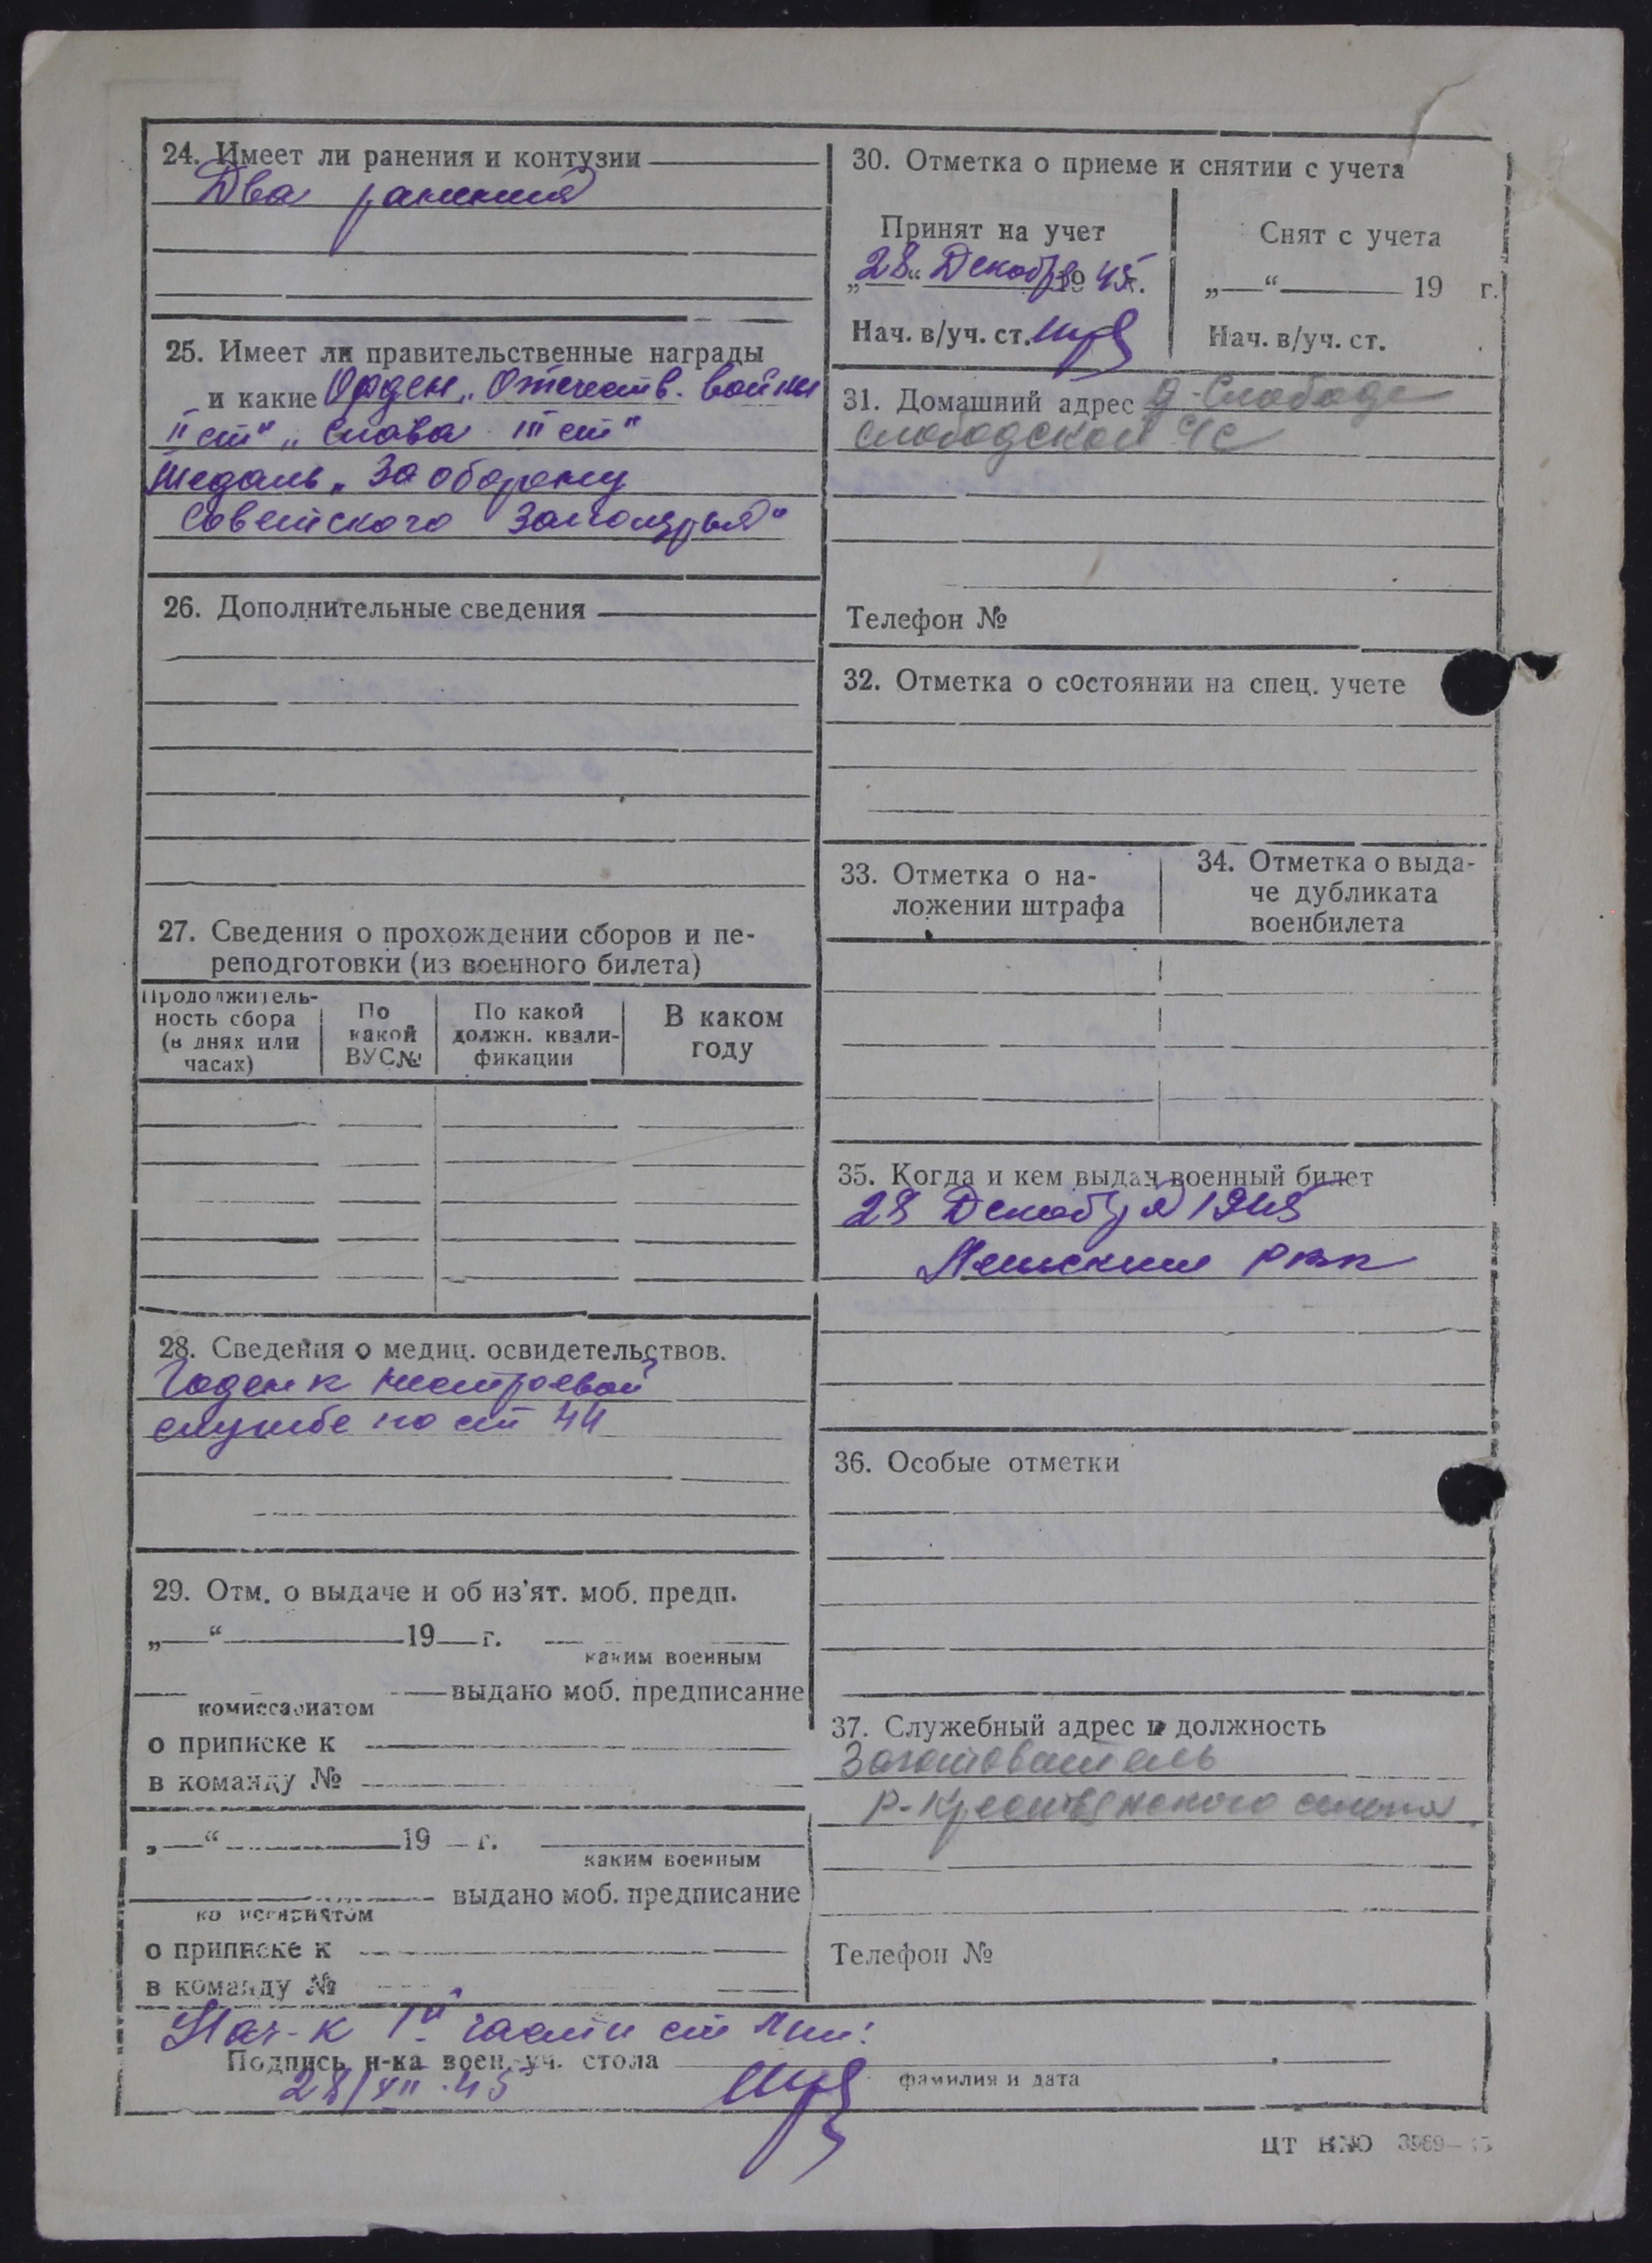 24. Имеет ли ранения и контузии
Два ранения
25. Имеет ли правительственные награды
и какие Орден „Отечеств. войны
II ст" „Слава III ст"
Медаль „За оборону
Советского Заполярья"
26. Дополнительные сведения
27. Сведения о прохождении сборов и пе-
реподготовки (из военного билета)
Продолжитель-
ность сбора
(в днях или
часах)
По
какой
ВУС№
По какой
должн. квали-
фикации
В каком
году
28. Сведения о медиц. освидетельствов.
Годен к нестроевой
службе по ст 44
29. Отм. о выдаче и об из'ят. моб. предп.
„—“ 19 г.
каким военным
выдано моб. предписание
комиссариатом
о приписке к
в команду №
„—“ 19 г.
каким военным
выдано моб. предписание
комиссариатом
о приписке к
в команду №
30. Отметка о приеме и снятии с учета
Принят на учет
„28“ Декабр 1945г.
Нач. в/уч. ст.
Снят с учета
„—“ 19 г.
Нач. в/уч. ст.
31. Домашний адрес д-Слобода
Слободской с/с
Телефон №
32. Отметка о состоянии на спец. учете
33. Отметка о на-
ложении штрафа
34. Отметка о выда-
че дубликата
военбилета
35. Когда и кем выдан военный билет
28 Декабря 1945
РВК
36. Особые отметки
37. Служебный адрес и должность
Заготовитель
Р-Крестьянского
Телефон №
Нач-к 1й части ст
Подпись н-ка воен.-уч. стола
28/XII.45
фамилия и дата
ЦТ ВМО 3969—45